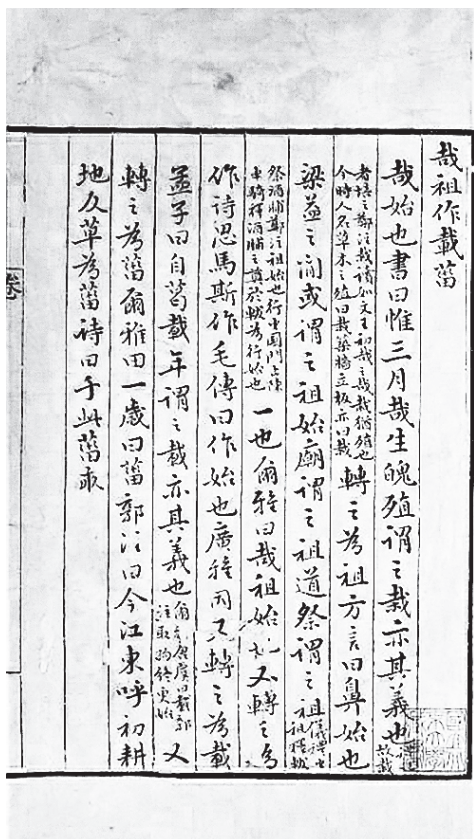 哉祖作載菑
哉始也書曰惟三月哉生魄殖謂之栽亦其義也故栽
者培之鄭注栽讀如文王初載之載栽猶殖也今時人名草木之殖曰栽築牆立板亦曰栽轉之為祖方言曰鼻始也
梁益之間或謂之祖始廟謂之祖道祭謂之祖儀禮出祖釋軷
祭酒脯鄭注祖始也行出國門止陳車騎釋酒脯之奠於軷為行始也一也爾雅曰哉祖始也又轉之為
作詩思馬斯作毛傳曰作始也廣雅同又轉之為載
孟子曰自葛載年謂之載亦其義也爾雅唐虞曰載郭注取物終更始又
轉之為菑爾雅田一歲曰菑郭注曰今江東呼初耕
地反草為菑詩曰于此菑畝